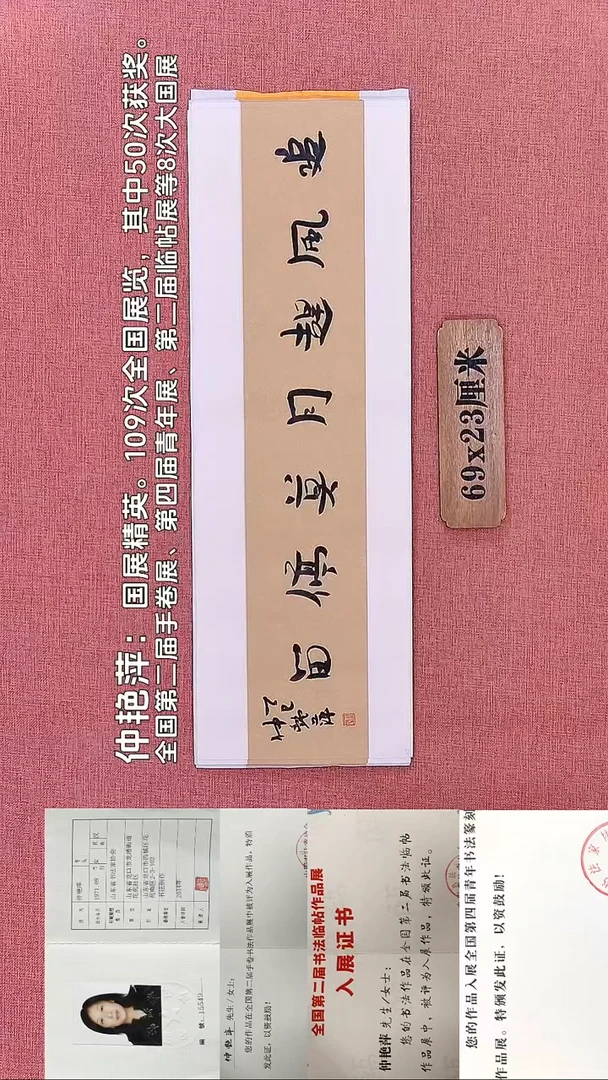 仲艳萍：国展精英。109次全国展览，其中50次获奖。
全国第二届手卷展、第四届青年展、第二届临帖展等8次大国展
追風趕月莫停留
69x23厘米
山东省书法家协会
仲艳萍 先生/女士：
您的作品在全国第二届手卷书法作品展中被评为入展作品，特颁
发此证，以资鼓励！
全国第二届书法临帖作品展
入展证书
仲艳萍 先生/女士：
您的书法作品在全国第二届书法临帖
作品展中，被评为入展作品，特颁此证。
您的作品入展全国第四届青年书法篆刻
作品展。特颁发此证，以资鼓励！